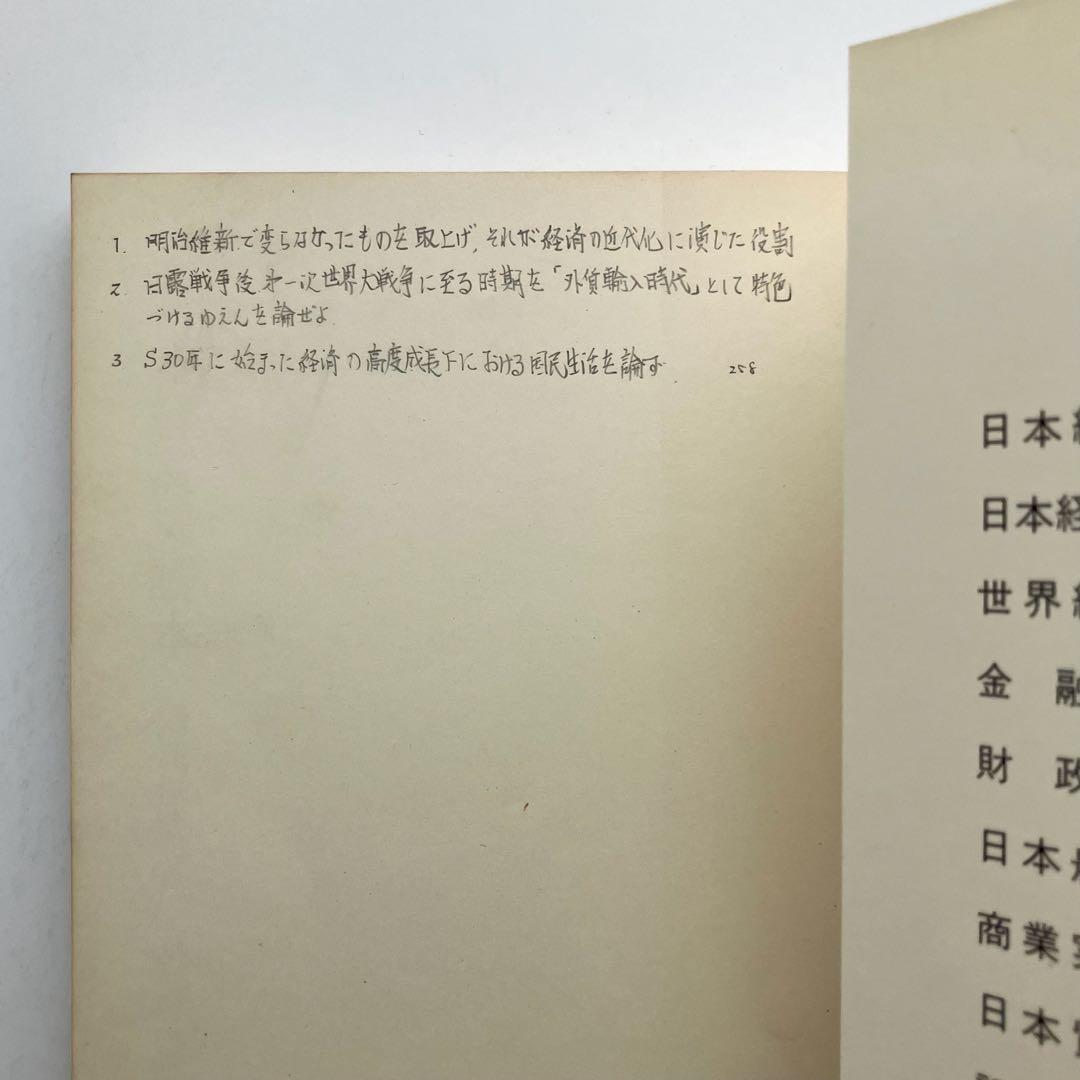 1. 明治維新で変らなかったものを取上げ、それが経済の近代化に演じた役割
2. 日露戦争後、第一次世界大戦争に至る時期を「外貨輸入時代」として特色
づけるゆえんを論ぜよ.
3 S30年に始まった経済の高度成長下における国民生活を論ず. 258
日本
日本経
世界
金融
財政
日本
商業
日本